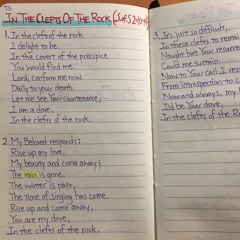 IN THE CLEFTS OF THE ROCK
1. In the clefts of the rock
I delight to be.
In the covert of the precipice
You would find me.
Lord, conform me now
Daily to your death.
Let me see Your countenance,
I am a dove.
In the clefts of the rock.
2. My Beloved responds:
Rise up my love,
My beauty and come away;
The rain is gone.
The winter is past,
The time of singing has come.
Rise up and come away,
You are my dove,
In the clefts of the rock.
3. It's just so difficult,
In these clefts to remai
Naught but Your resurrec
Could me sustain.
Now to Your call I res
From introspection to
Now and always, my
I'd be Your dove,
In the clefts of the R